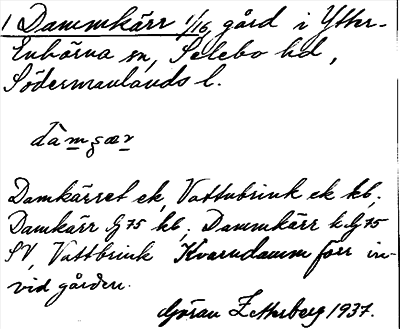 1 Dammkärr 1/16, gård i Ytter-
Enhörna sn, Selebo hd,
Södermanlands l.
dàmçær
Damkärret ek, Vattubrink ek kb;
Damkärr G75 kb; Dammkärr k.G75
SV, Vattbrink Kvarndamm förr in-
vid gården.
Göran Zetterberg 1937.